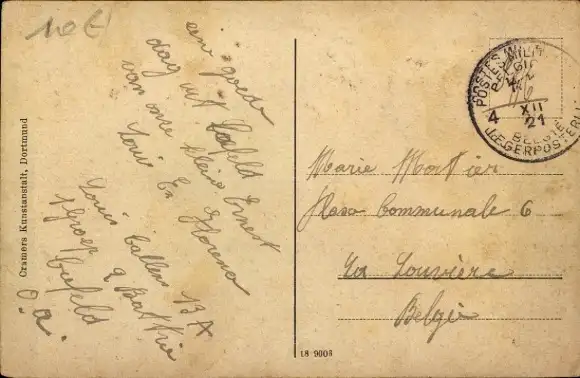 10€
een goede
dag uit Crefeld
van onze kleine Ernest
Louis En Florena
Louis Callens 13 A
1 Groep 2 Battrie
Crefeld
O.a.
Cramers Kunstanstalt, Dortmund
POSTES MILIT
BELGIQUE
4 XII 21
BELGIE
LEGERPOSTERIJ
Marie Mortier
Communale 6
La Louvière
Belgie
18 9006